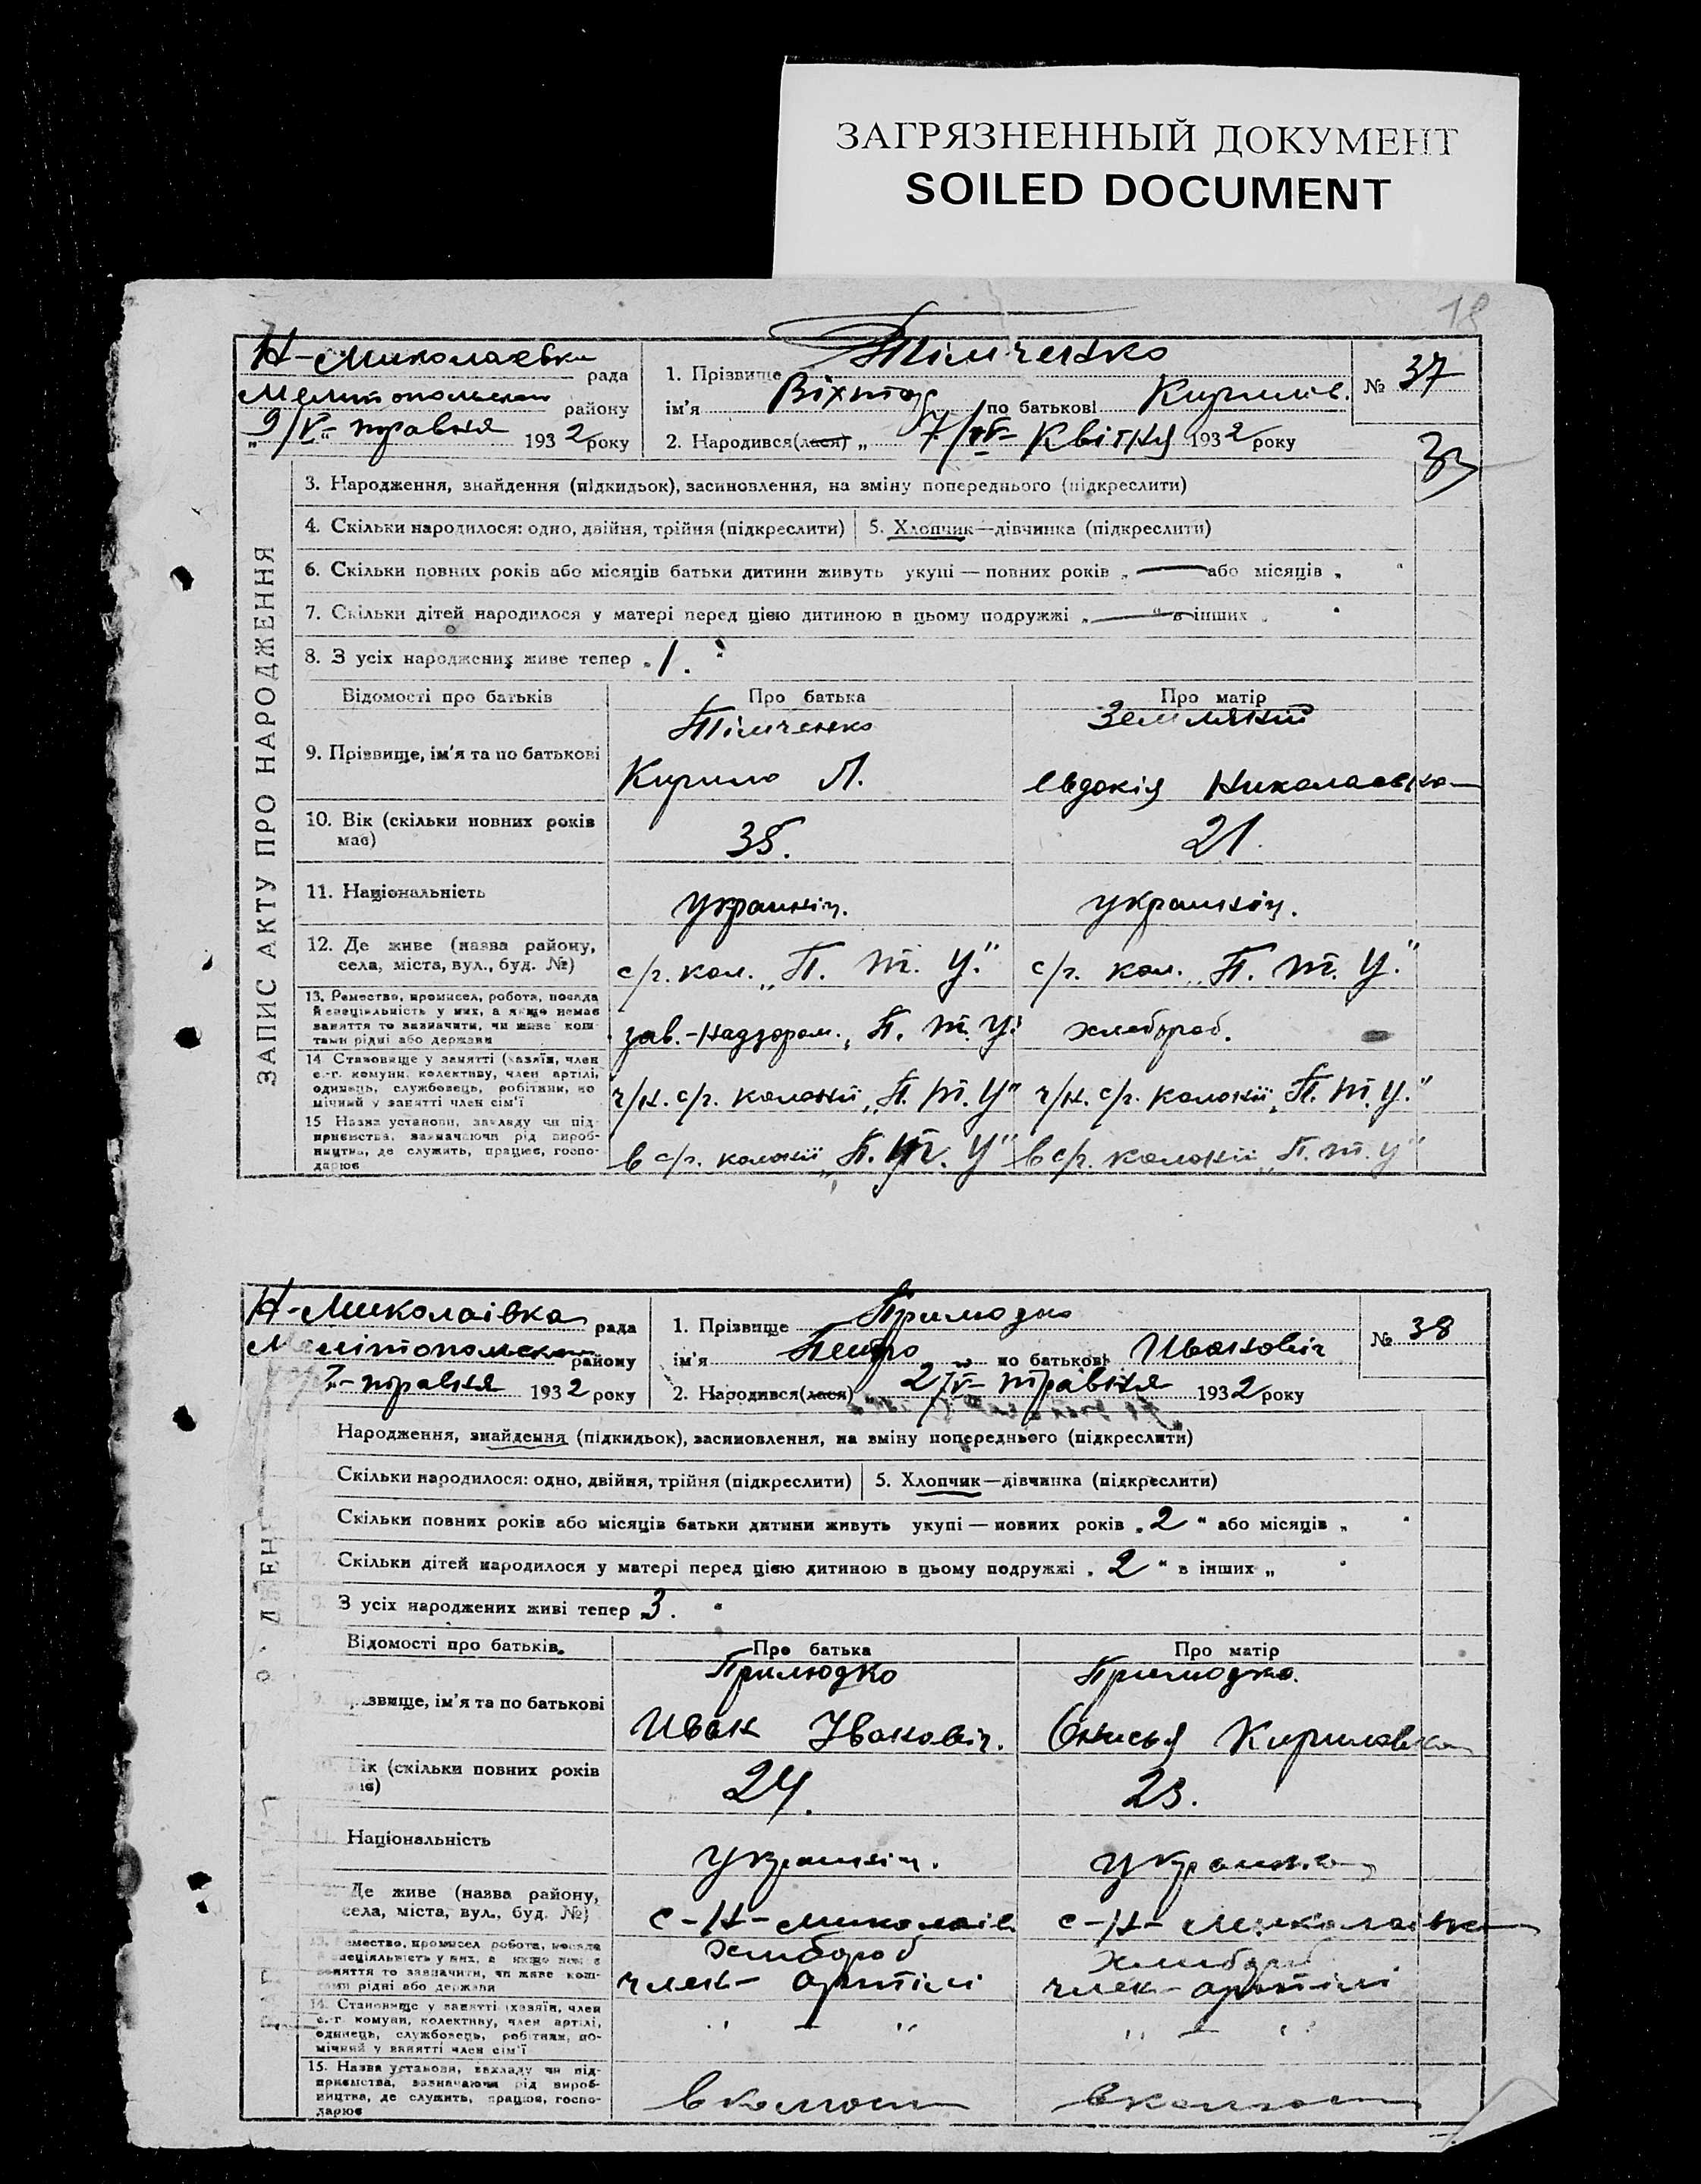 ЗАГРЯЗНЕННЫЙ ДОКУМЕНТ
SOILED DOCUMENT
Н-Миколаевка рада
Мелитопольськ району
"9/V- травня 1932 року
1. Прізвище Тімченко
ім'я Віхтор по батькові Кирилів.
2. Народився(лася) „ 7/IV- Квітня 1932 року
№ 37
ЗАПИС АКТУ ПРО НАРОДЖЕННЯ
3. Народження, знайдення (підкидьок), засиновлення, на зміну попереднього (підкреслити)
4. Скільки народилося: одно, двійня, трійня (підкреслити) 5. Хлопчик—дівчинка (підкреслити)
6. Скільки повних років або місяців батьки дитини живуть укупі — повних років „ — або місяців „ "
7. Скільки дітей народилося у матері перед цією дитиною в цьому подружжі „ — " в інших „
8. З усіх народжених живе тепер „1.
Відомості про батьків Про батька Про матір
9. Прізвище, ім'я та по батькові
Тімченко
Кирило Л.
Евдокія Николаевна
10. Вік (скільки повних років має) 35. 21.
11. Національність украинін. украинін.
12. Де живе (назва району, села, міста, вул., буд. №)
с/г. кол. „П. Т. У." с/г. кол. „П. Т. У."
13. Ремество, промисел, робота, посада й спеціяльність у них, а якщо немає заняття то зазначити, чи живе коштами рідні або держави
зав.-надзором. „П. Т. У." хлебороб.
14. Становище у занятті (хазяїн, член с.-г. комуни, колективу, член артілі, одинець, службовець, робітник, помічний у занятті член сім'ї
ч/к. с/г. колонії „П. Т. У" ч/к. с/г. колонії „П. Т. У."
15 Назва установи, закладу чи підприємства, зазначаючи рід виробництва, де служить, працює, господарює
в с/г. колонії „П. Т. У" в с/г. колонії „П. Т. У"
Н-Миколаівка рада
Мелітопольск району
травня 1932 року
1. Прізвище Прилюдко
ім'я Петро по батькові Иванович
2. Народився(лася) „ 2/V- травня 1932 року
№ 38
Народження, знайдення (підкидьок), засиновлення, на зміну попереднього (підкреслити)
Скільки народилося: одно, двійня, трійня (підкреслити) 5. Хлопчик—дівчинка (підкреслити)
Скільки повних років або місяців батьки дитини живуть укупі — повних років „2" або місяців „ "
Скільки дітей народилося у матері перед цією дитиною в цьому подружжі „2" в інших „
З усіх народжених живі тепер „3.
Відомості про батьків. Про батька Про матір
звище, ім'я та по батькові
Прилюдко Прилюдко.
Иван Іванович. Онисья Кириловна
ік (скільки повних років має) 24. 23.
Національність украинін. украинка
Де живе (назва району, села, міста, вул., буд. №)
с-Н-Миколаів с-Н-Миколаівка
хлибороб хлибороб
член- артілі член- артілі
13. Ремество, промисел робота, посада й спеціяльність у них, а якщо немає заняття то зазначити, чи живе коштами рідні або держави
14. Становище у занятті (хазяїн, член с.-г. комуни, колективу, член артілі, одинець, службовець, робітник, помічний у занятті член сім'ї
„ — „ „ — „
15. Назва установи, закладу чи підприємства, зазначаючи рід виробництва, де служить, працює, господарює